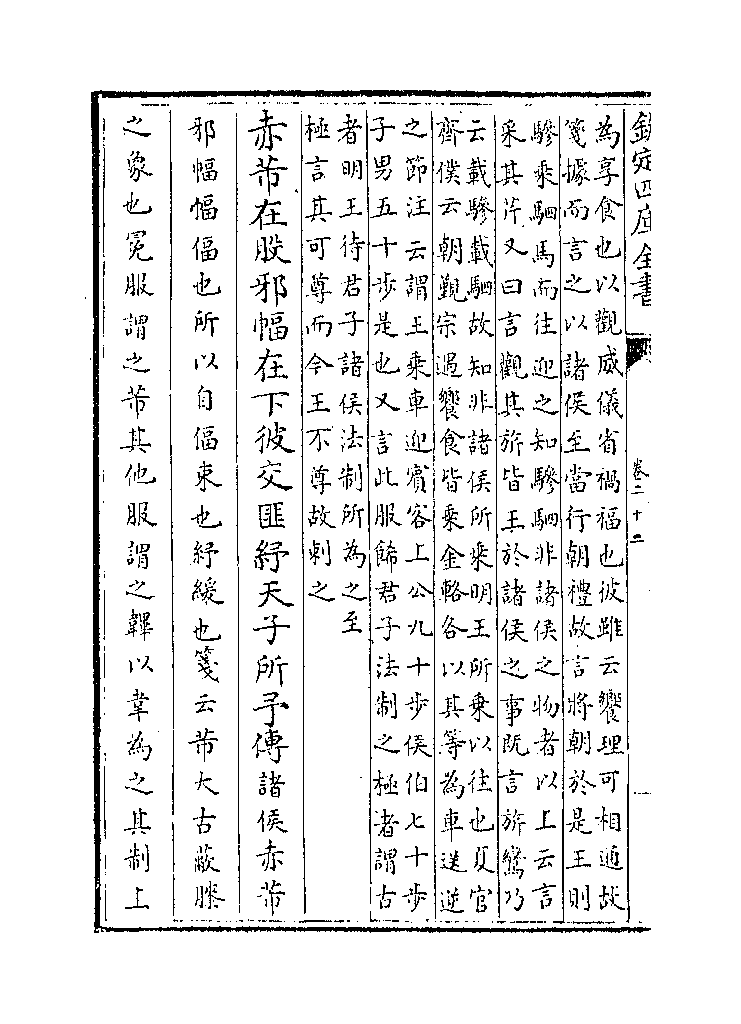 欽定四庫全書
卷二十二
為享食也以觀威儀省禍福也彼雖云饗理可相通故
箋據而言之以諸侯至當行朝禮故言將朝於是王則
驂乘駟馬而往迎之知驂駟非諸侯之物者以上云言
采其芹又曰言觀其旂皆王於諸侯之事既言旂鸞乃
云載驂載駟故知非諸侯所乘明王所乘以往也夏官
齊僕云朝覲宗遇饗食皆乘金輅各以其等為車送逆
之節注云謂王乘車迎賓客上公九十步侯伯七十步
子男五十步是也又言此服飾君子法制之極者謂古
者明王待君子諸侯法制所為之至
極言其可尊而今王不尊故刺之
赤芾在股邪幅在下彼交匪紓天子所予傳諸侯赤芾
邪幅幅偪也所以自偪束也紓緩也箋云芾大古蔽膝
之象也冕服謂之芾其他服謂之韠以韋為之其制上